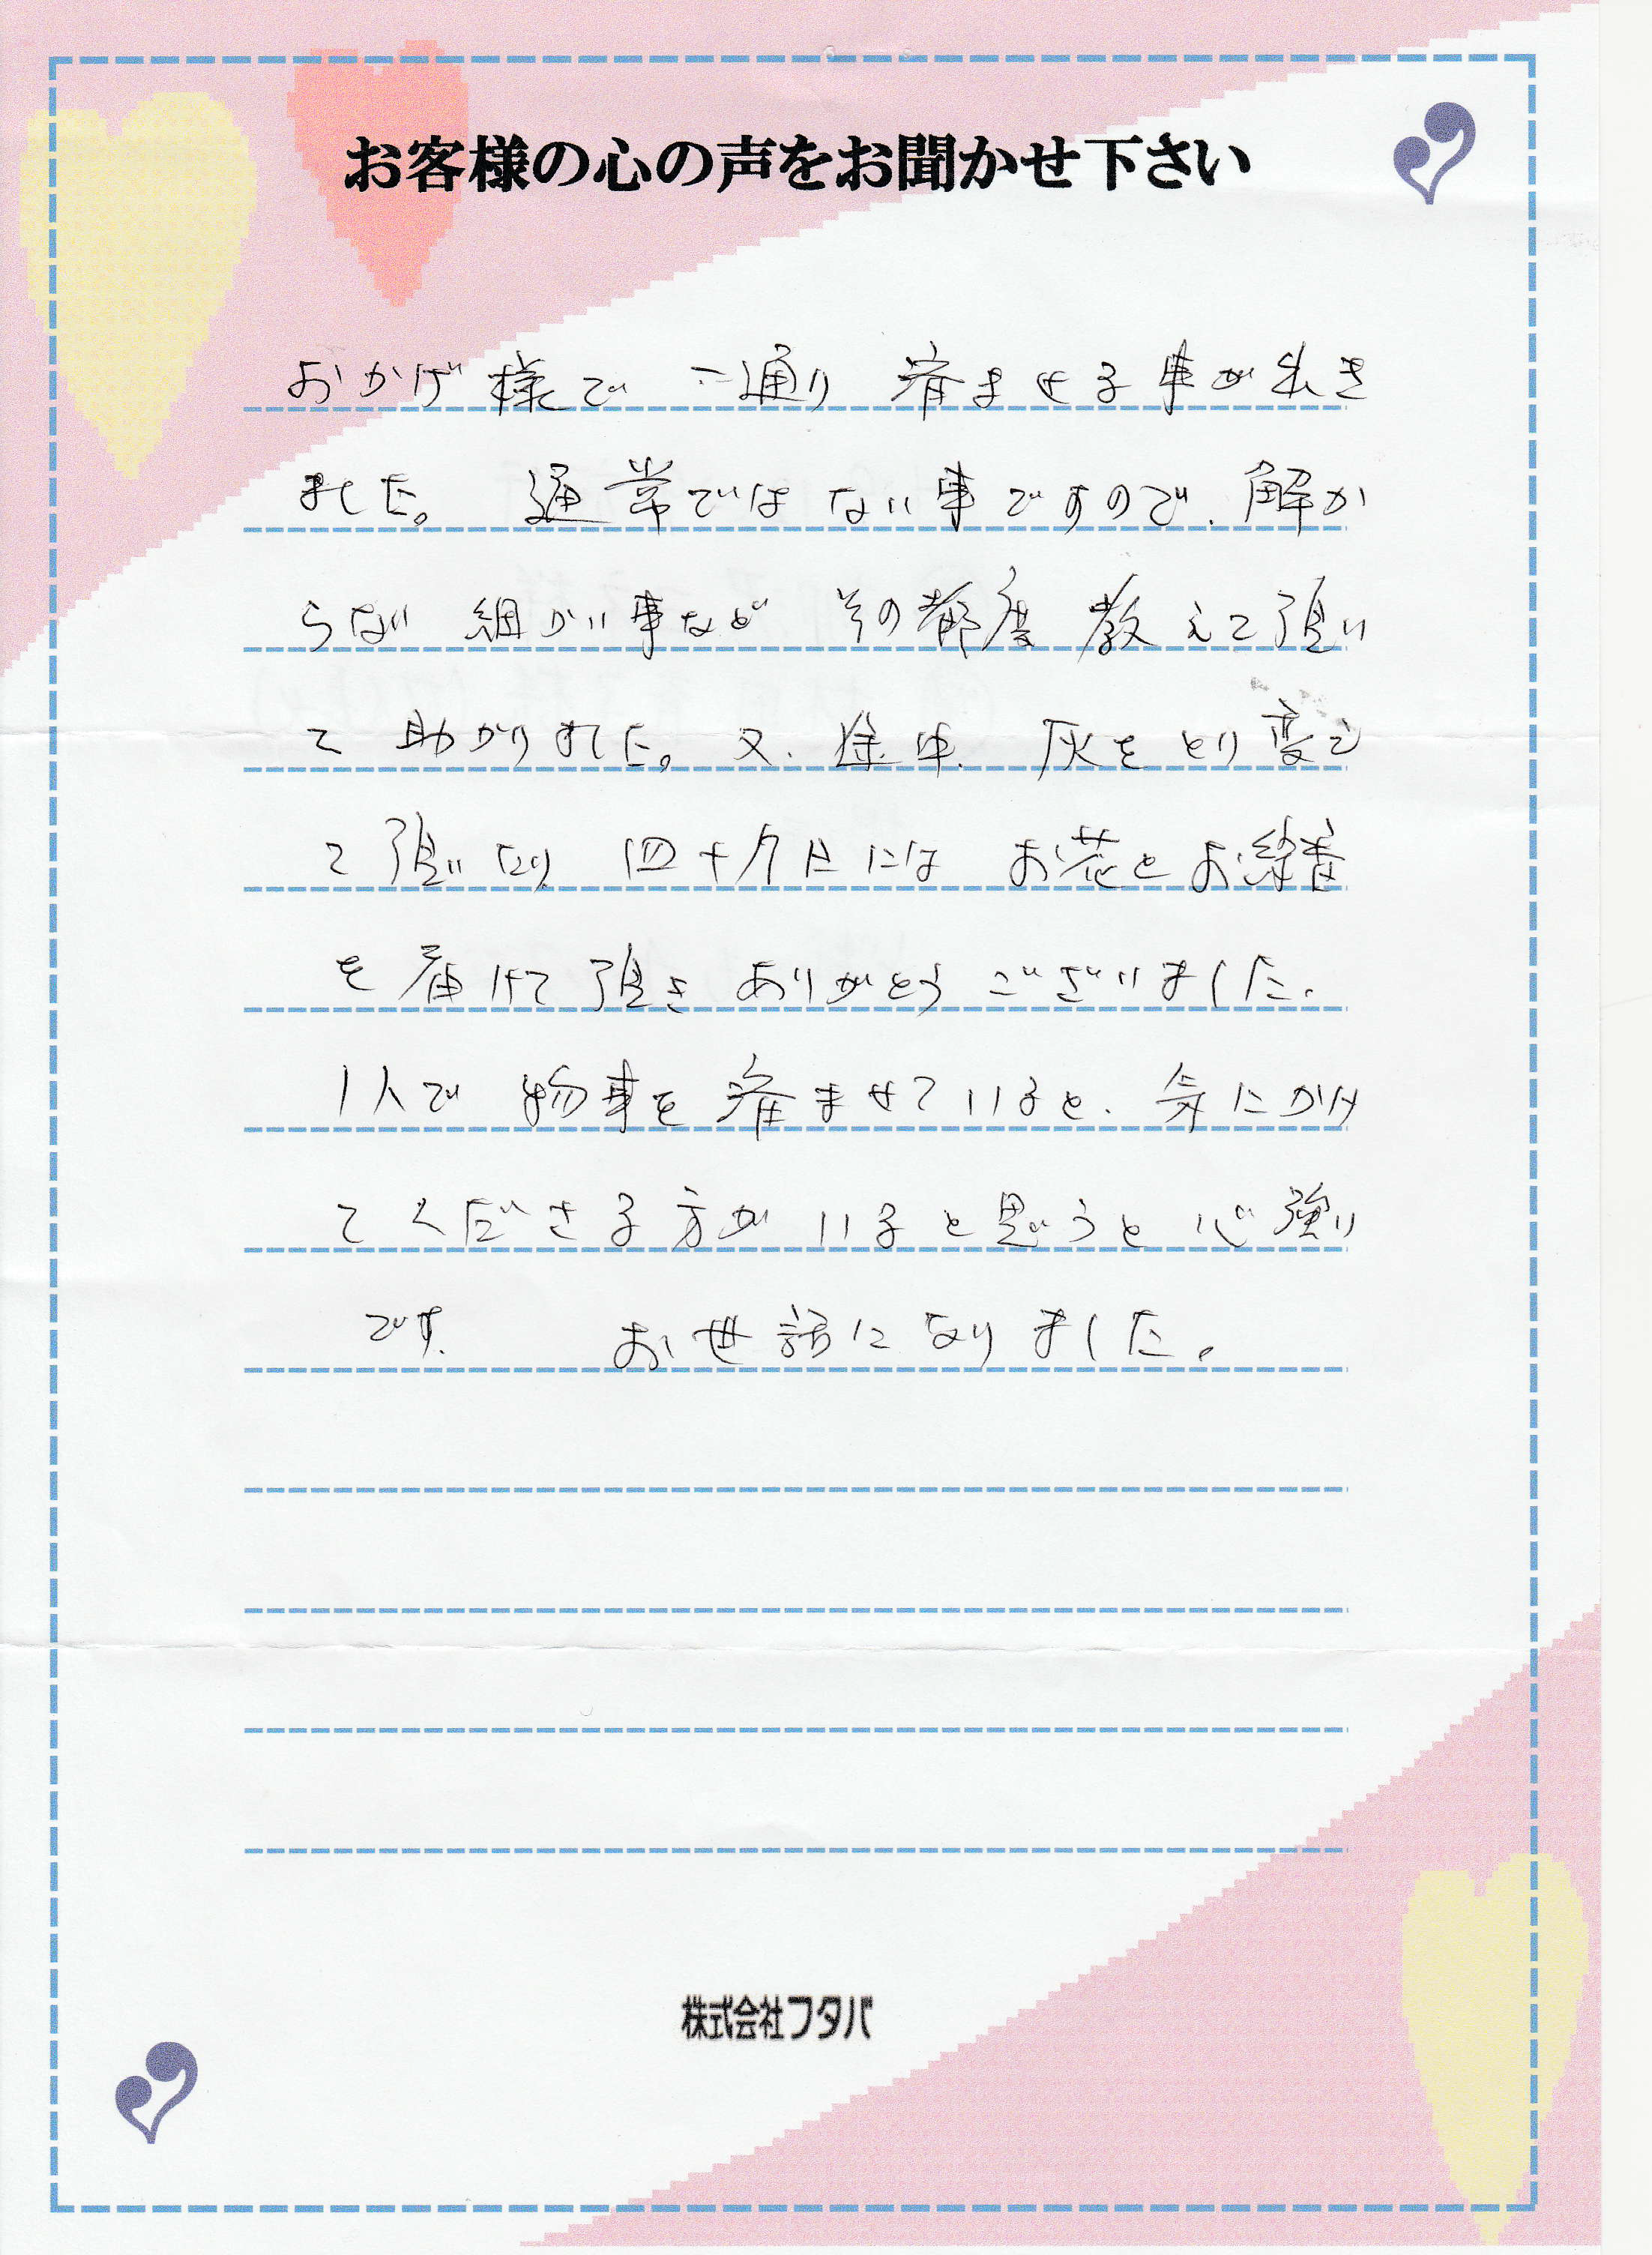 お客様の心の声をお聞かせ下さい
おかげ様で 一通り 済ませる事が出き
ました。 通常ではない事ですので、解か
らない 細かい事など その都度 教えて頂い
て 助かりました。又、途中、灰をとり変え
て頂いたり、四十九日には お花とお線香
を届けて頂き ありがとうございました。
1人で 物事を済ませていると、気にかけ
てくださる方が いると思うと 心強い
です。 お世話になりました。
株式会社フタバ